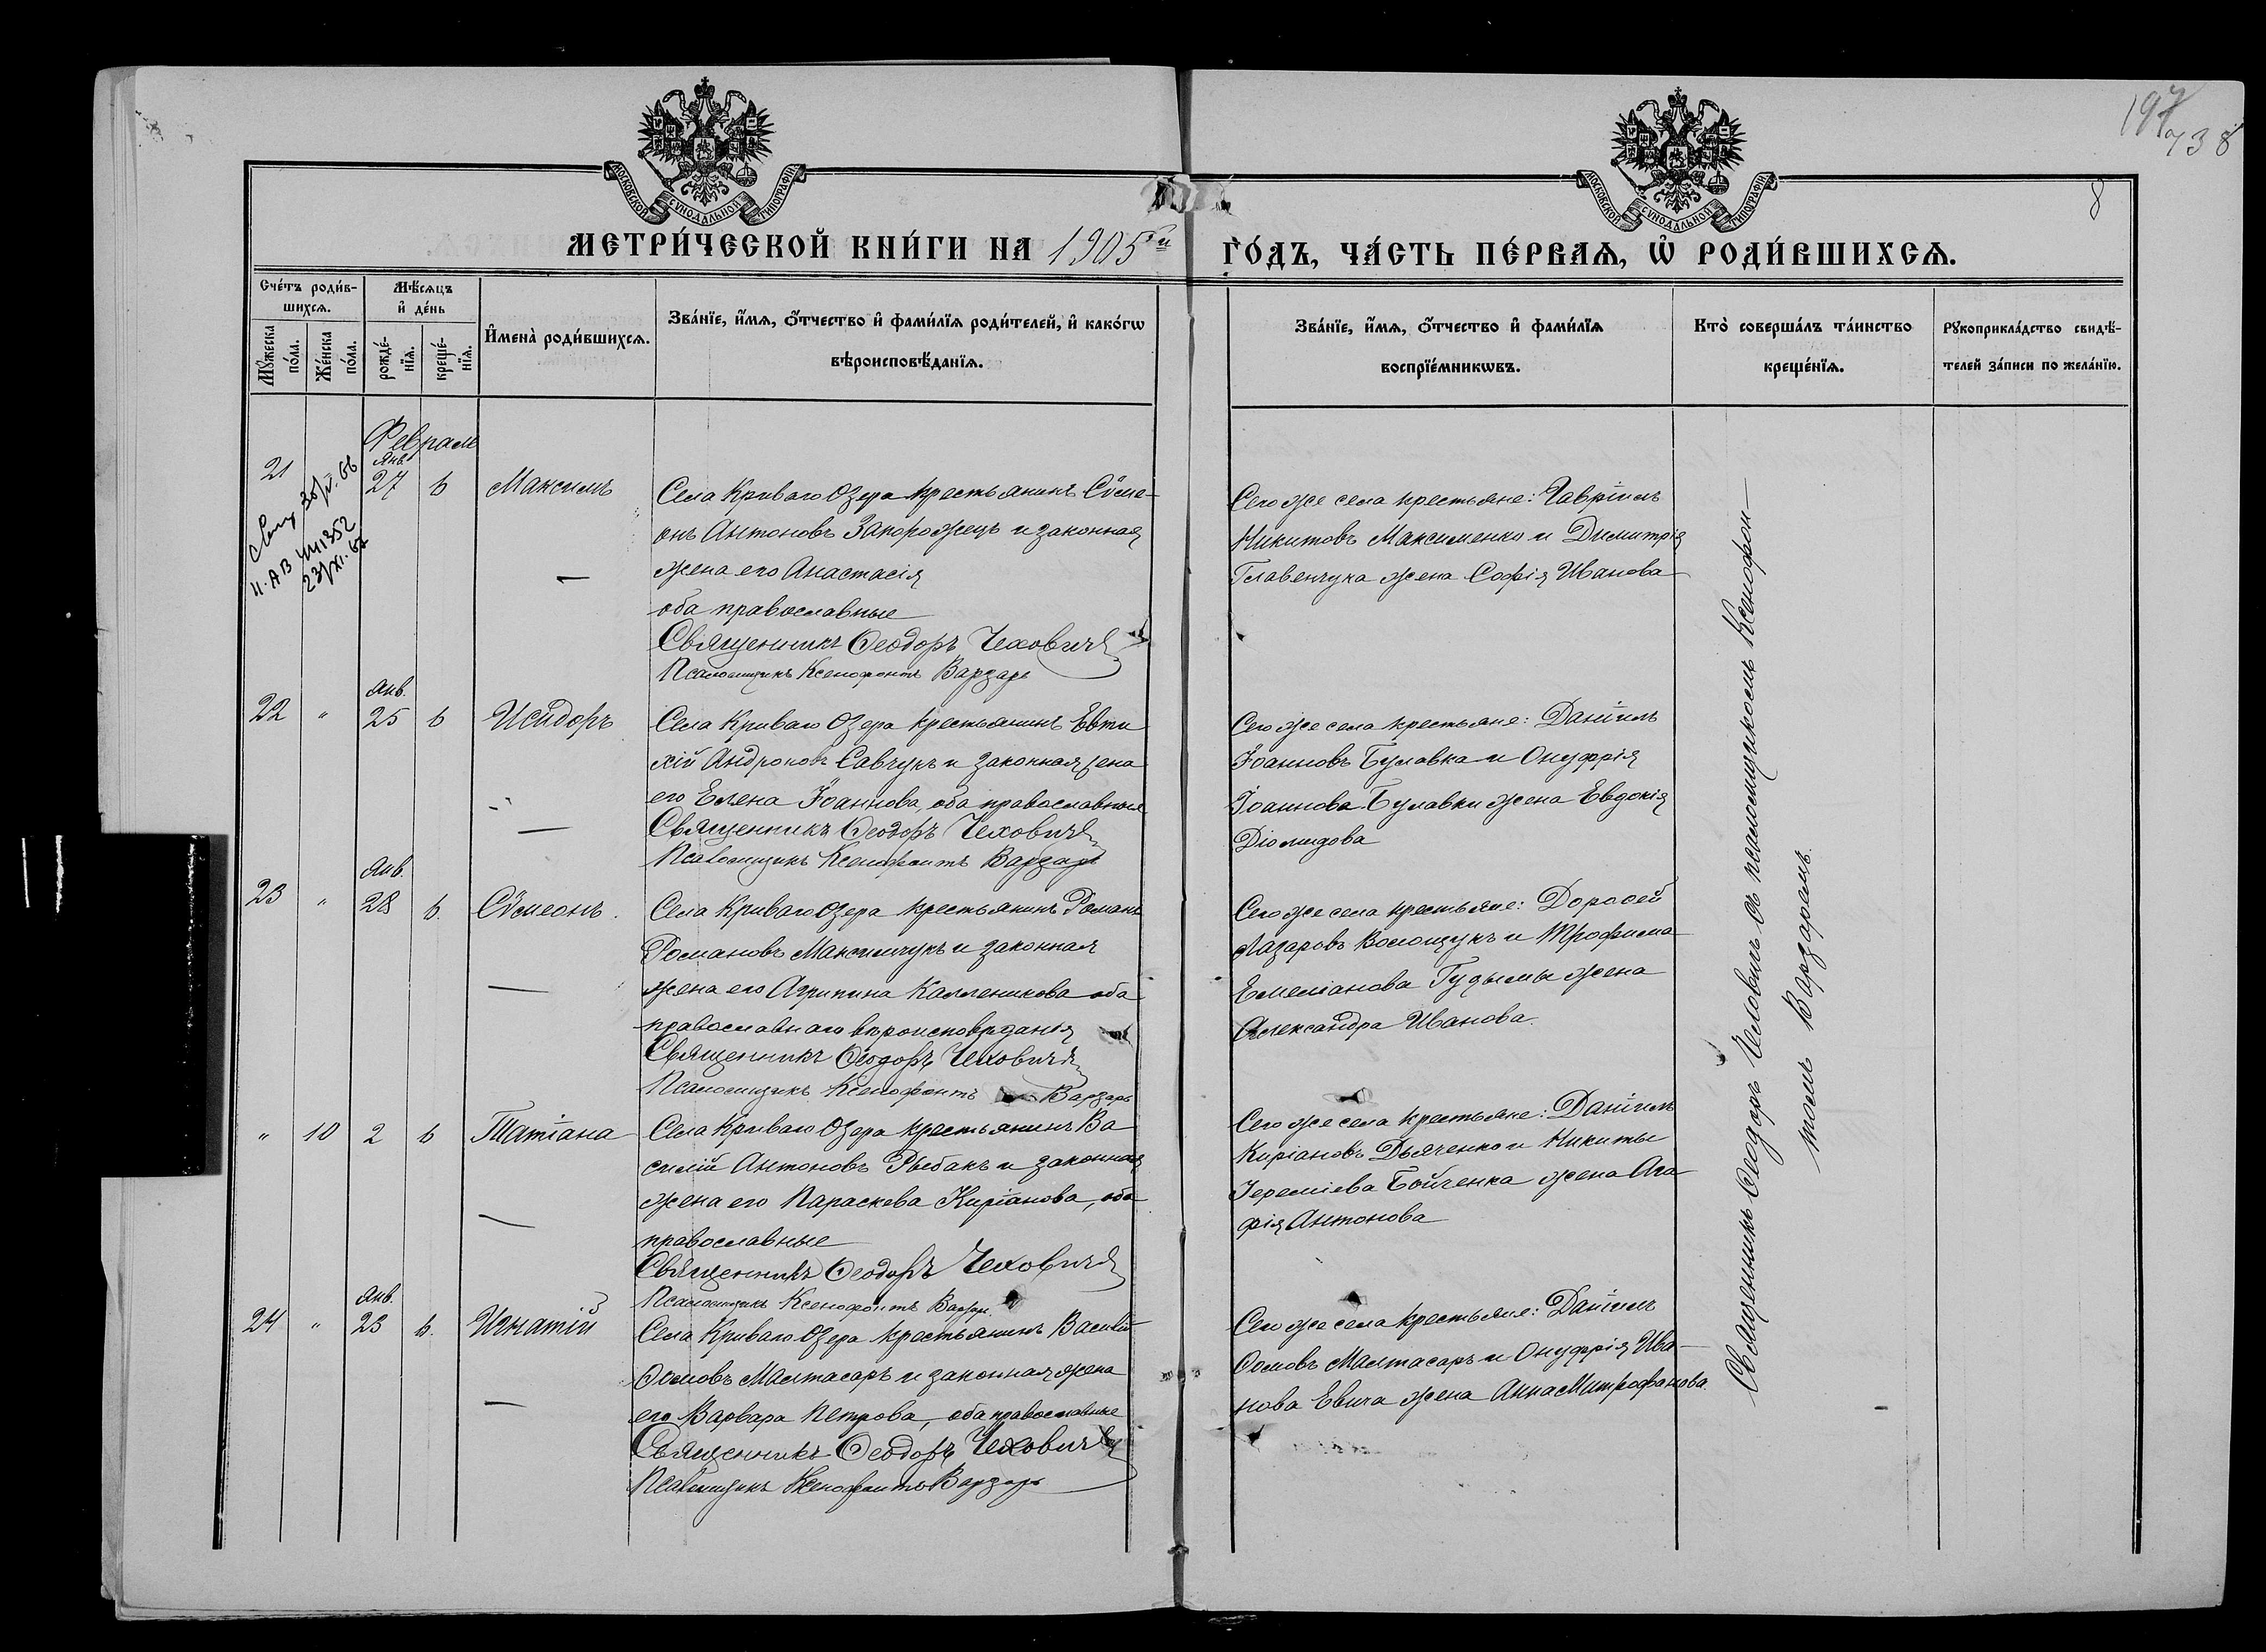 197
738
8
МОСКОВСКОЙ СѴНОДАЛЬНОЙ ТИПОГРАФІИ
МОСКОВСКОЙ СѴНОДАЛЬНОЙ ТИПОГРАФІИ
МЕТРИ́ЧЕСКОЙ КНИ́ГИ НА 1905ый ГО́ДЪ, ЧА́СТЬ ПЕ́РВАѦ, Ѡ҆ РОДИ́ВШИХСѦ.
Сче́тъ роди́в-
шихсѧ.
Мꙋ́жеска по́ла.
Же́нска по́ла.
Мѣ́сѧцъ
и҆ де́нь
рожде́-
нїѧ.
креще́-
нїѧ.
И҆мена̀ роди́вшихсѧ.
Зва́нїе, и҆́мѧ, ѻ҆́тчество и҆ фами́лїѧ роди́телей, и҆ како́гѡ
вѣроисповѣ́данїѧ.
Зва́нїе, и҆́мѧ, ѻ҆́тчество и҆ фами́лїѧ
воспрїе́мникѡвъ.
Кто̀ соверша́лъ та́инство
креще́нїѧ.
Рꙋкоприкла́дство свидѣ́-
телей за́писи по жела́нїю.
Февраль
21
Янв.
27 6 Максимъ
II-АВ 441352
23/XI-67
Села Криваго Озера крестьянинъ Сѵме-
онъ Антоновъ Запорожецъ и законная
жена его Анастасія
оба православные
Священникъ Ѳеодоръ Чеховичъ
Псаломщикъ Ксенофонтъ Варзарь
Сего же села крестьяне: Гавріилъ
Никитовъ Максименко и Димитрія
Главенчука жена Софія Иванова
Янв.
22 " 25 6 Исидоръ
Села Криваго Озера крестьянинъ Евти
хій Андроновъ Савчукъ и законная жена
его Елена Іоаннова, оба православные
Священникъ Ѳеодоръ Чеховичъ
Псаломщикъ Ксенофонтъ Варзарь
Сего же села крестьяне: Даніилъ
Іоанновъ Булавка и Онуфрія
Іоаннова Булавки жена Евдокія
Діомидова
Янв.
23 " 28 6. Сѵмеонъ.
Села Криваго Озера крестьянинъ Романъ
Романовъ Максимчукъ и законная
жена его Агрипина Каллениковa оба
православнаго вѣроисповѣданія
Священникъ Ѳеодоръ Чеховичъ
Псаломщикъ Ксенофонтъ Варзарь
Сего же села крестьяне: Дороѳей
Лазаровъ Волощукъ и Трофима
Емеліанова Гудымы жена
Александра Иванова.
" 10 2 6 Татіана
Села Криваго Озера крестьянинъ Ва
силій Антоновъ Рыбакъ и законная
жена его Параскева Киріанова, оба
православные
Священникъ Ѳеодоръ Чеховичъ
Псаломщикъ Ксенофонтъ Варзарь
Сего же села крестьяне: Даніилъ
Киріановъ Дьяченко и Никиты
Іереміева Бойченка жена Ага
фія Антонова
Янв.
24 " 23 6. Игнатій
Села Криваго Озера крестьянинъ Василій
Ѳомовъ Малтасаръ и законная жена
его Варвара Петрова, оба православные
Священникъ Ѳеодоръ Чеховичъ
Псаломщикъ Ксенофонтъ Варзарь
Сего же села крестьяне: Даніилъ
Ѳомовъ Малтасаръ и Онуфрія Ива-
нова Евича жена Анна Митрофанова.
Священникъ Ѳеодоръ Чеховичъ съ псаломщикомъ Ксенофон-
томъ Варзаремъ.